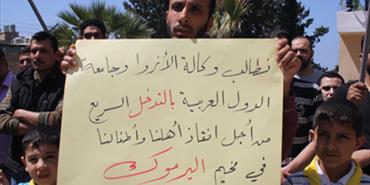 نطالب وكالة الأنروا وجامعة
الدول العربية بالتدخل السريع
من أجل انقاذ أهلنا وأطفالنا
في مخيم اليرموك